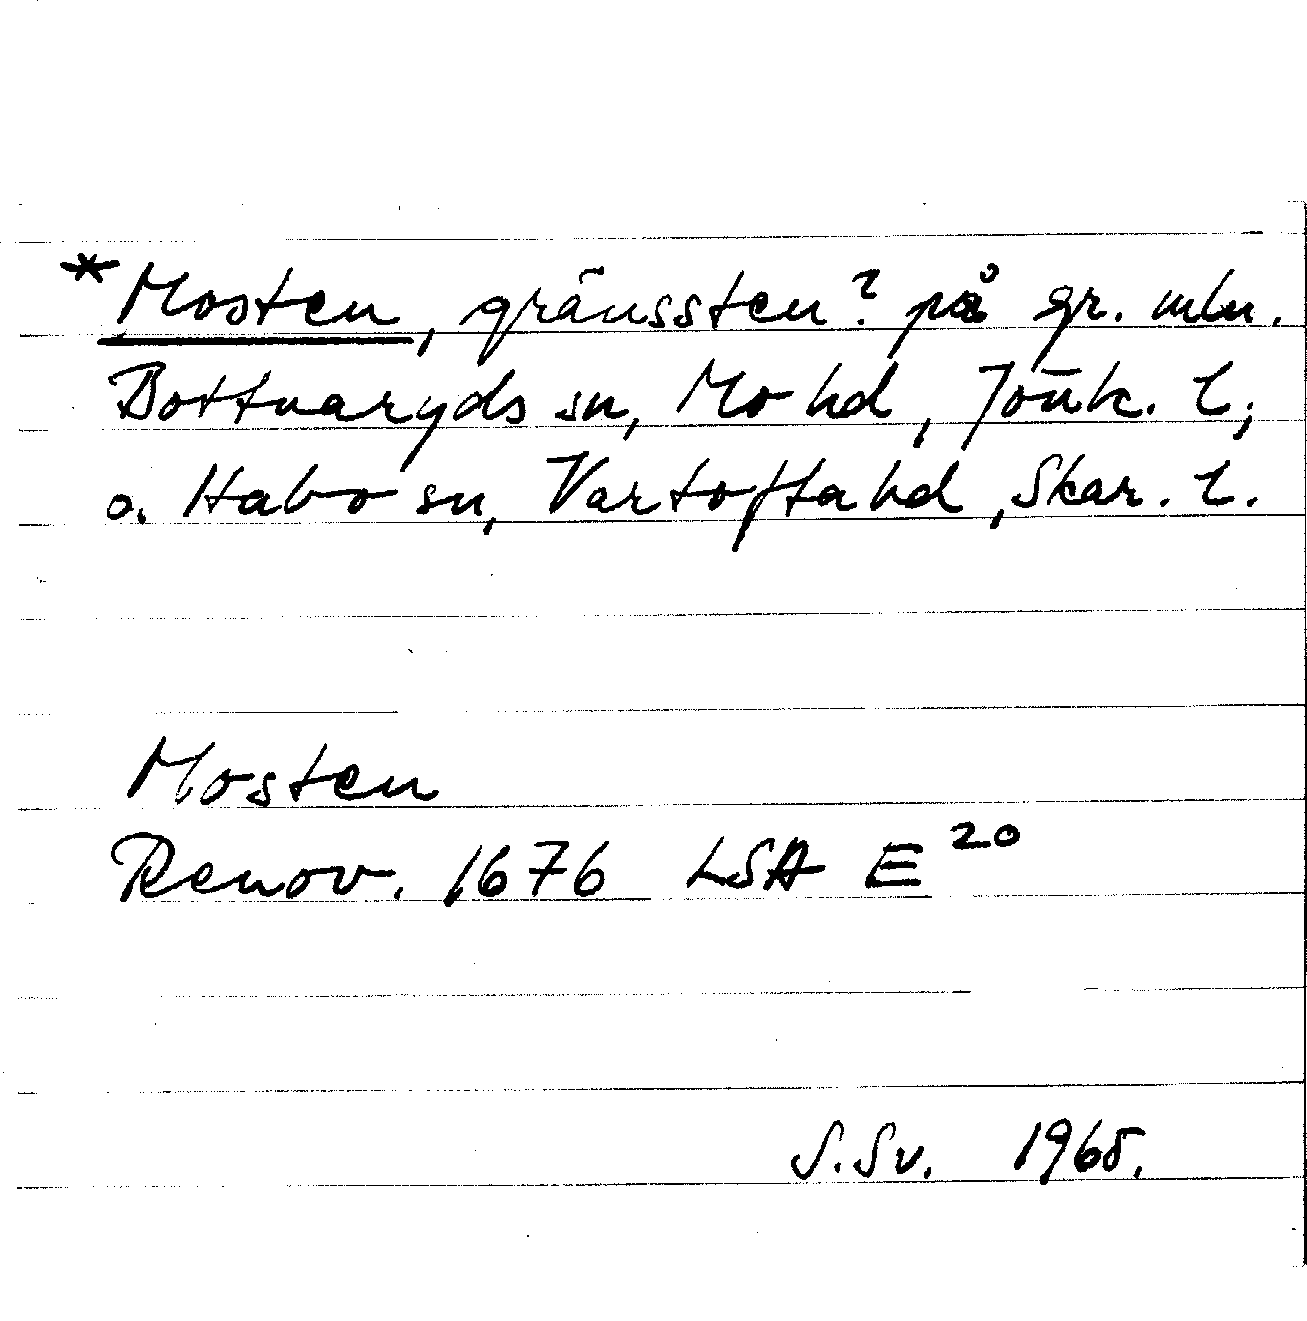 *Mosten, gränssten? på gr. mln.
Bottnaryds sn, Mo hd, Jönk. l;
o. Habo sn, Vartofta hd, Skar. l.
Mosten
Renov. 1676 LSA E 20
S.Sv. 1965.